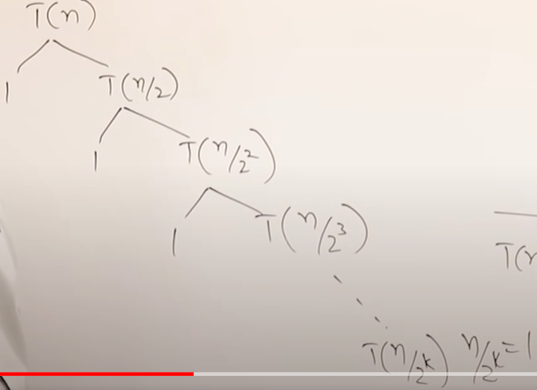 T(n)
1 T(n/2)
1 T(n/2²)
1 T(n/2³)
T(n/2ᵏ) n/2ᵏ = 1